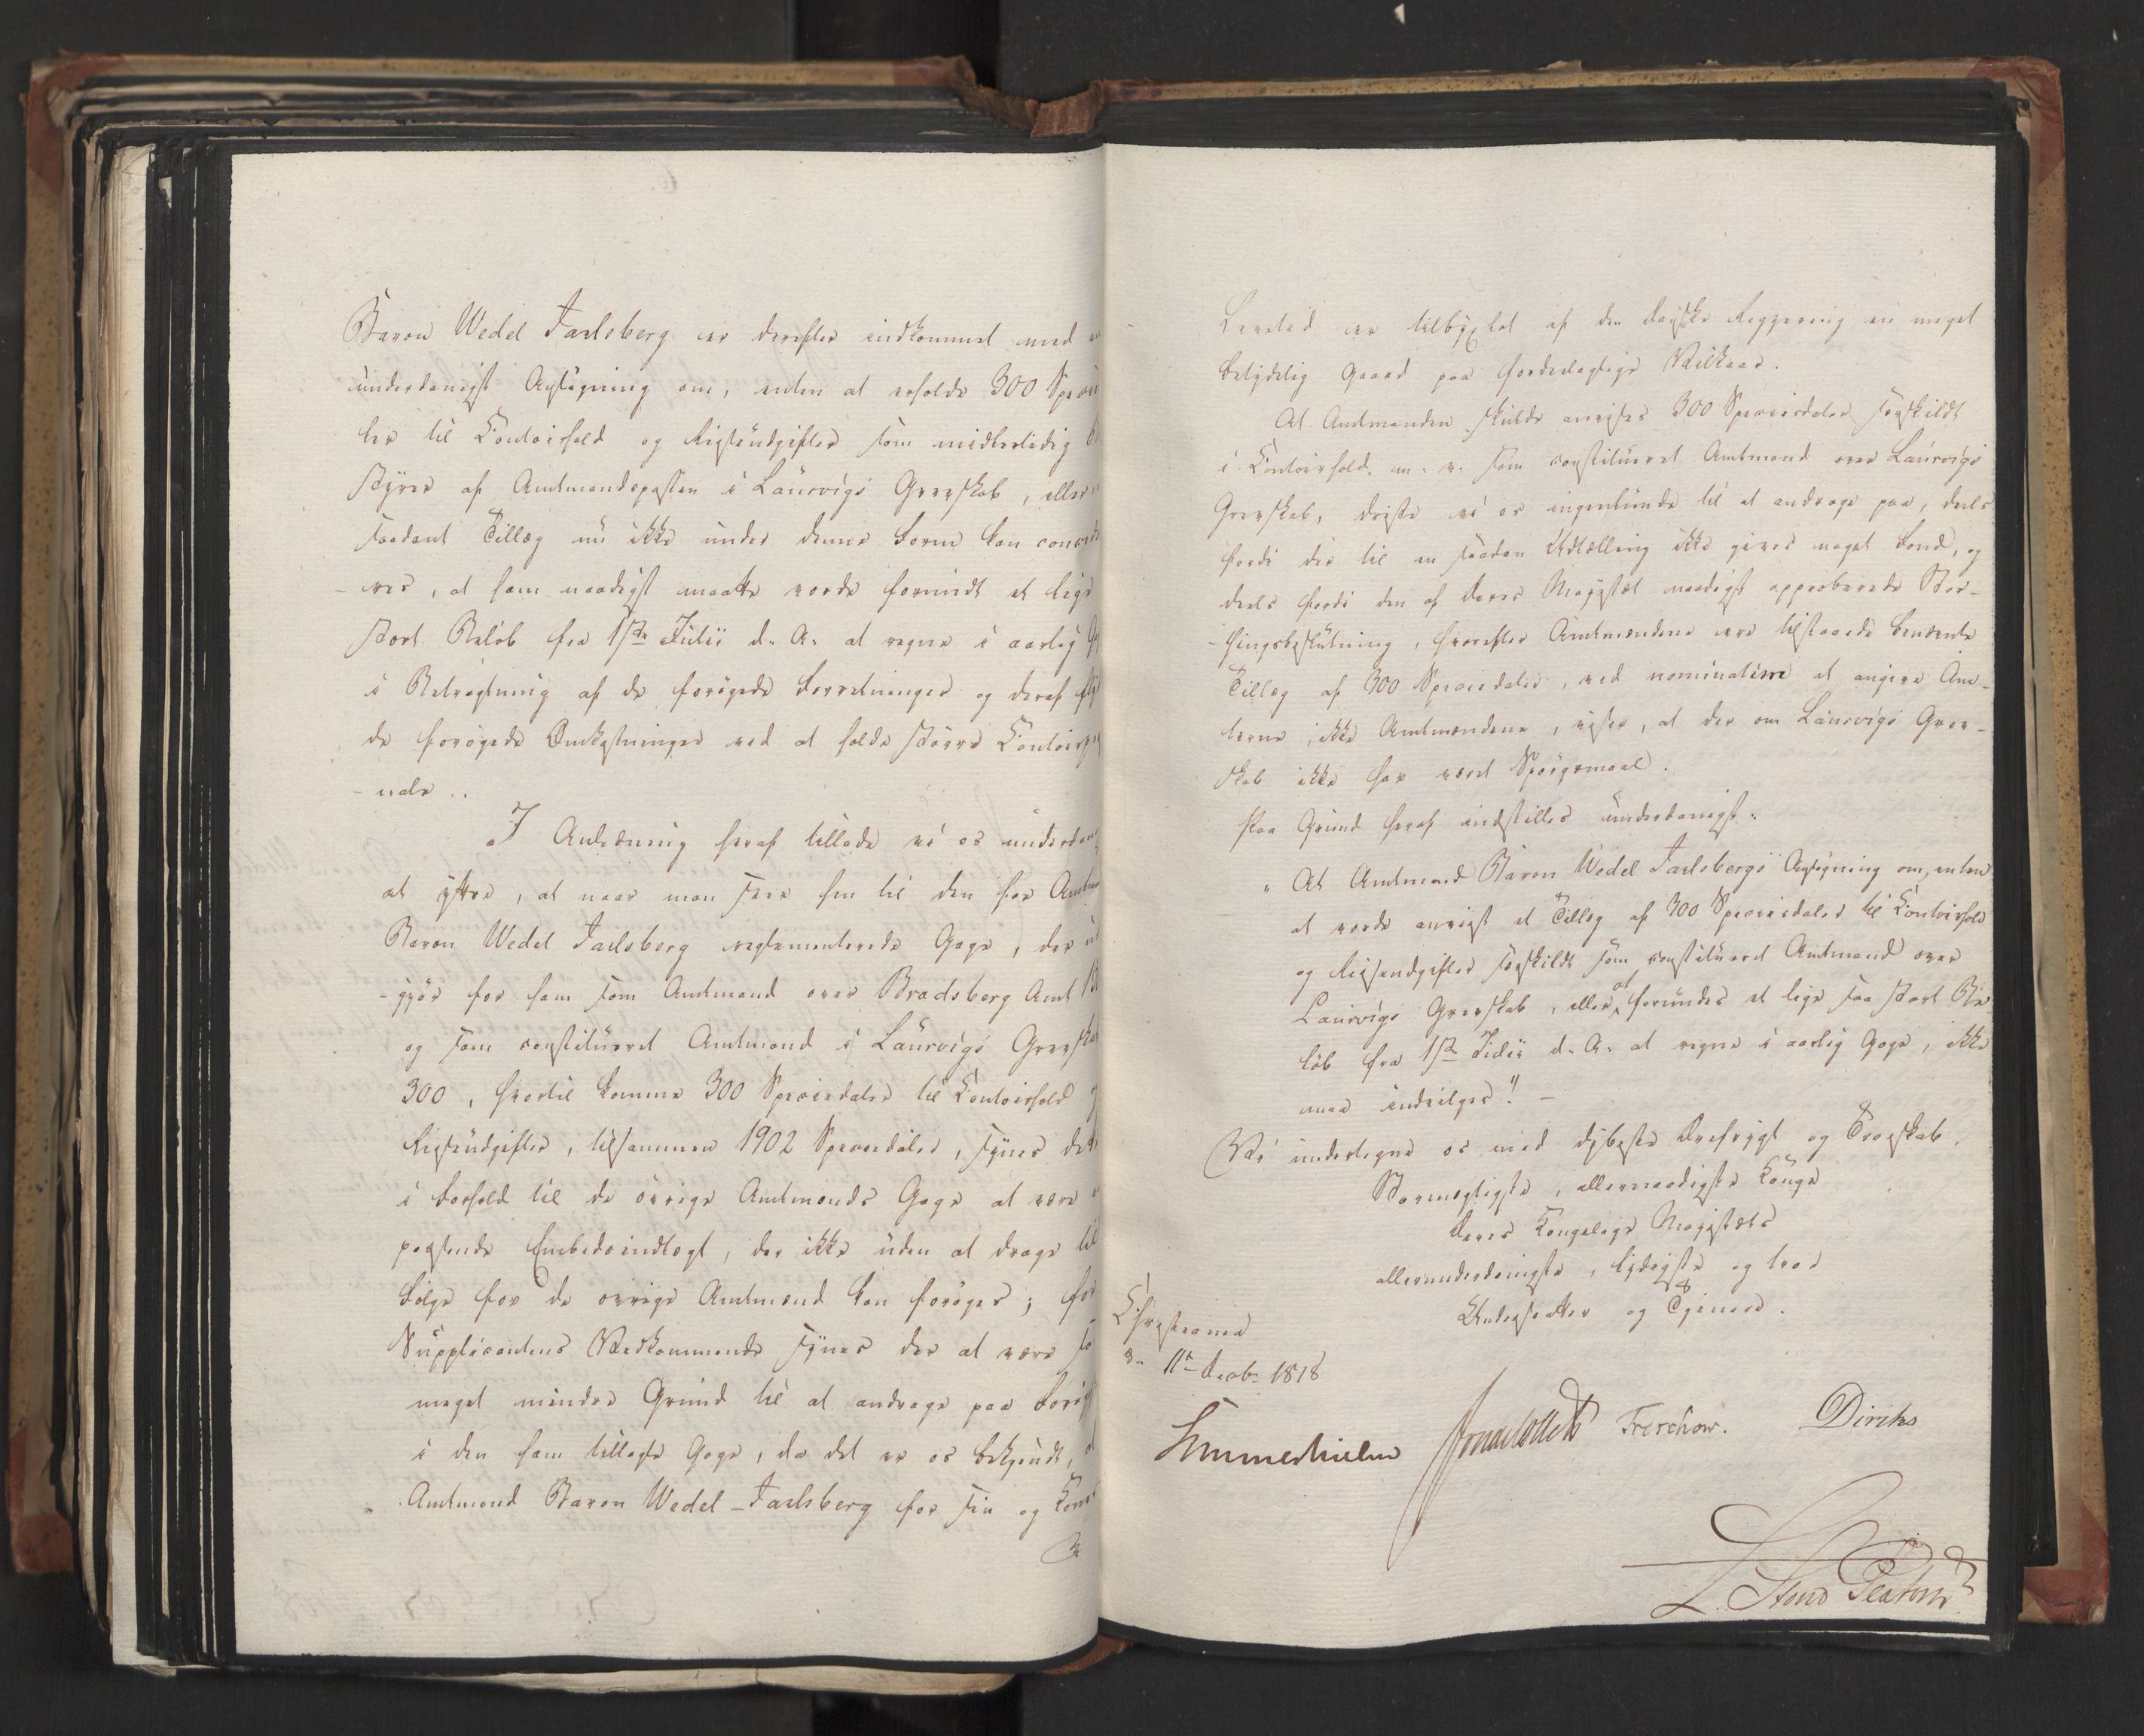 Baron Wedel Jarlsberg er derefter indkommet med
underdanigst Ansögning om, enten at erholde 300
ler til Contoirhold og Reiseudgifter som midlertidig
styrer af Amtmandsposten i Laurvigs Grevskab, eller
saadant Tillæg nu ikke under denne Form kan
- res, at ham naadigst maatte vorde forundt et lige
stort Beløb fra 1ste Julii d. A. at regne i aarlig
i Betragtning af de forögede Forretninger og deraf
de forögede Omkostninger ved at holde större
- nale.
I Anledning heraf tillade vi os
at yttre, at naar man seer hen til den for
Baron Wedel Jarlsberg reglementerede Gage, der
- gjör for ham som Amtmand over Bradsberg Amt
og som constitueret Amtmand i Laurvigs
300, hvortil komme 300 Speciedaler til Contoirhold
Reiseudgifter, tilsammen 1902 Speciedaler, synes
i Forhold til de övrige Amtmænds Gage at være
passende Embedsindtægt, der ikke uden at drage til
Fölge for de övrige Amtmænd kan foröges; for
Supplicantens Vedkommende synes der at være
meget mindre Grund til at andrage paa
i den ham tillagte Gage, da det er os bekjendt,
Amtmand Baron Wedel-Jarlsberg for sin og
er tilbyttet af den danske Regjering en meget
betydelig Gaard paa fordelagtige Vilkaar.
At Amtmanden skulde anvises 300 Speciesdaler særskildt
i Contoirhold m: v: som constitueret Amtmand over Laurvigs
Grevskab, driste vi os ingenlunde til at andrage paa, deels
fordi der til en saadan Udtælling ikke gives noget Fond, og
deels fordi den af Deres Majestæt naadigst approberede Stor-
- thingsbeslutning, hvorefter Amtmændene ere tilstaaede benævnte
Tillæg af 300 Speciedaler, ved nominatim at angive Am-
terne, ikke Amtmændene, viser, at der om Laurvigs Grev-
skab ikke har været Spörgsmaal.
Paa Grund heraf indstilles underdanigst:
" At Amtmand Baron Wedel Jarlsbergs Ansögning om, enten
at vorde anviist et Tillæg af 300 Speciesdaler til Contoirhold
og Reiseudgifter særskildt som constitueret Amtmand over
Laurvigs Grevskab, eller at forundes et lige saa stort Be-
löb fra 1ste Julii d. A. at regne i aarlig Gage, ikke
maa indvilges." -
Vi undertegne os med dybeste Ærefrygt og Troeskab,
Stormægtigste, allernaadigste Konge
Deres Kongelige Majestæts
allerunderdanigste, lydigste og troe
Undersaatter og Tjenere.
Christiania
d. 11te Decbr 1818
Sommerhielm Treschow. Diriks